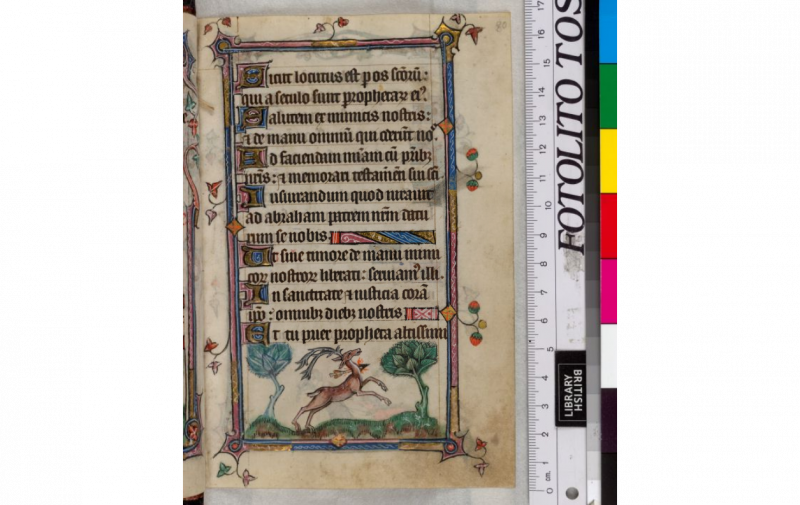 Sicut locutus est p os scōrū:
qui a seculo sunt prophetarꝫ ei?.
Salutem ex inimicis nostris:
⁊ de manu omniū qui oderūt no?
Ad faciendam miām cū pr̄ibꝫ
nr̄is: ⁊ memorari testamēti sui sc̄i.
Iusiurandum quod iurauit
ad abraham patrem nr̄m datu
rum se nobis.
Ut sine timore de manu inimi
corꝫ nostrorꝫ liberati: seruiam? illi.
In sanctitate ⁊ iusticia corā
ip̄o: omnibꝫ diebꝫ nostris
Et tu puer propheta altissimi
FOTOLITO TOS
BRITISH
LIBRARY
0 cm. 1 2 3 4 5 6 7 8 9 10 11 12 13 14 15 16 17